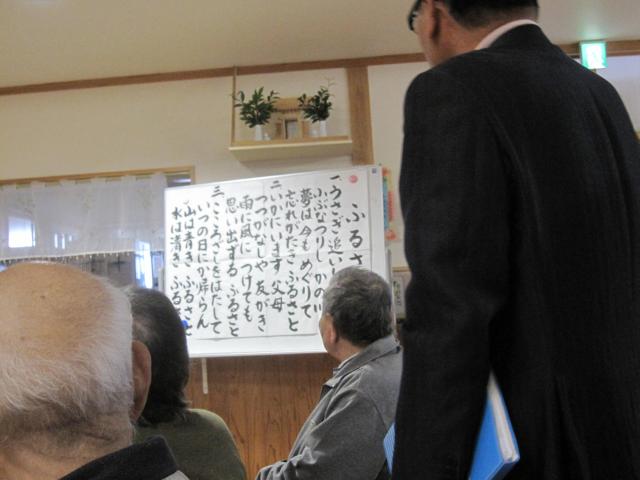 ふるさ
一、うさぎ追いし
こぶなつりし かの川
夢は今も めぐりて
忘れがたき ふるさと
二、いかにいます 父母
つつがなしや 友がき
雨に風に つけても
思い出する ふるさと
三、こころざしをはたして
いつの日にか帰らん
山は青き ふるさと
水は清き ふる